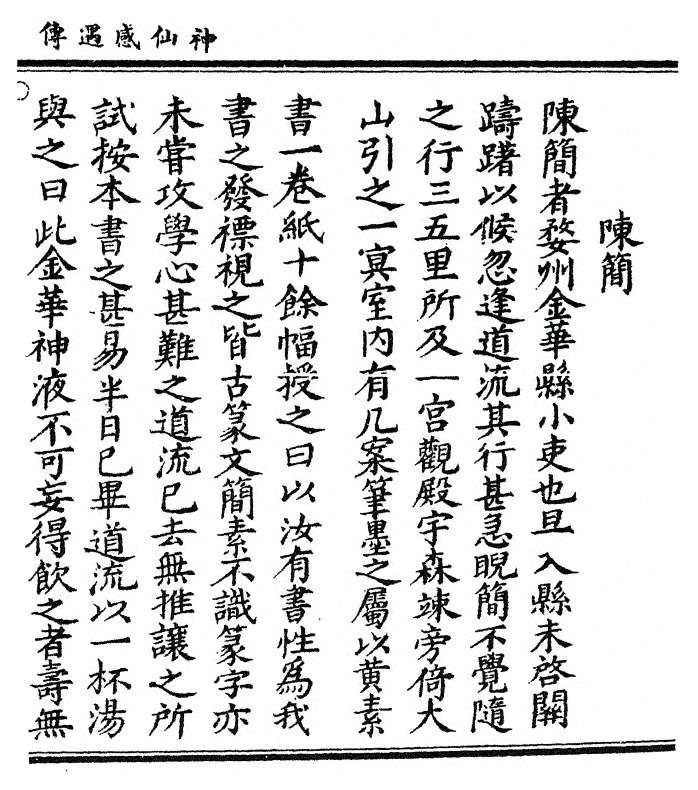 神仙感遇傳
陳簡
陳簡者婺州金華縣小吏也旦入縣未啓關
躊躇以候忽逢道流其行甚急睨簡不覺隨
之行三五里所及一宮觀殿宇森竦旁倚大
山引之一㝠室內有几案筆墨之屬以黄素
書一卷紙十餘幅授之曰以汝有書性爲我
書之發褾視之皆古篆文簡素不識篆字亦
未甞攻學心甚難之道流已去無推讓之所
試按本書之甚易半日已畢道流以一杯湯
與之曰此金華神液不可妄得飲之者壽無